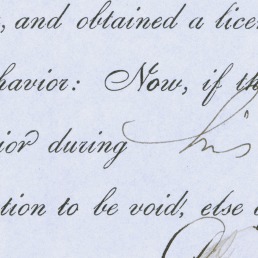 , and obtained a licen
havior: Now, if th
ior during his
tion to be void, else